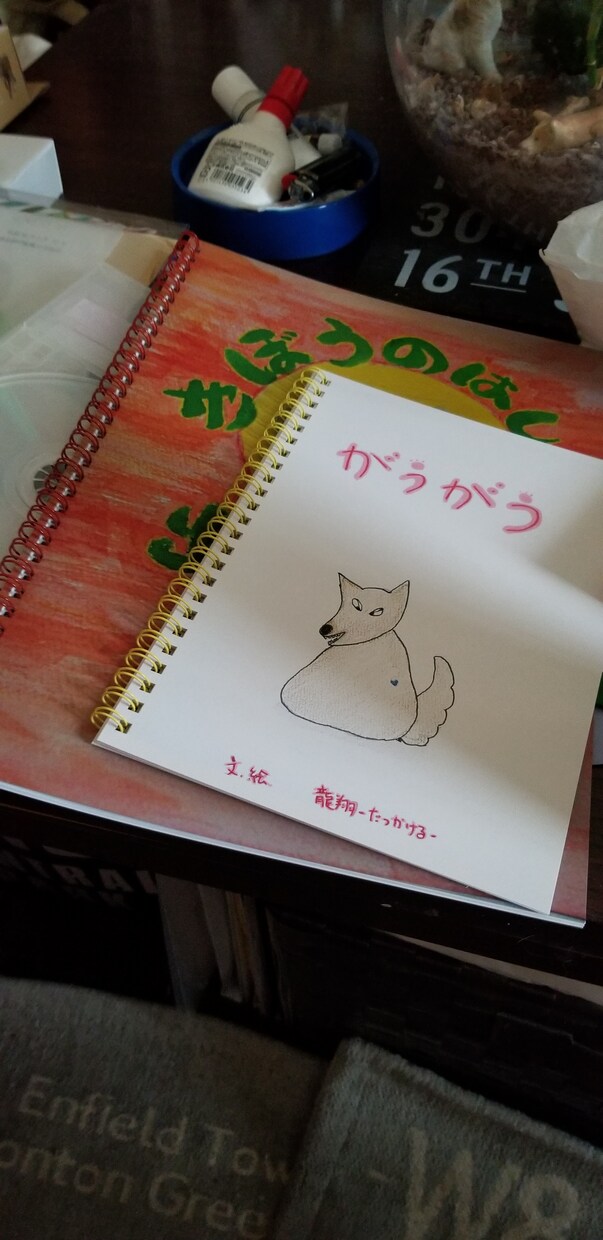 30
16TH
きぼうのはし
がぅがぅ
文.絵
龍翔-たつかける-
Enfield Tow
onton Gree
W8